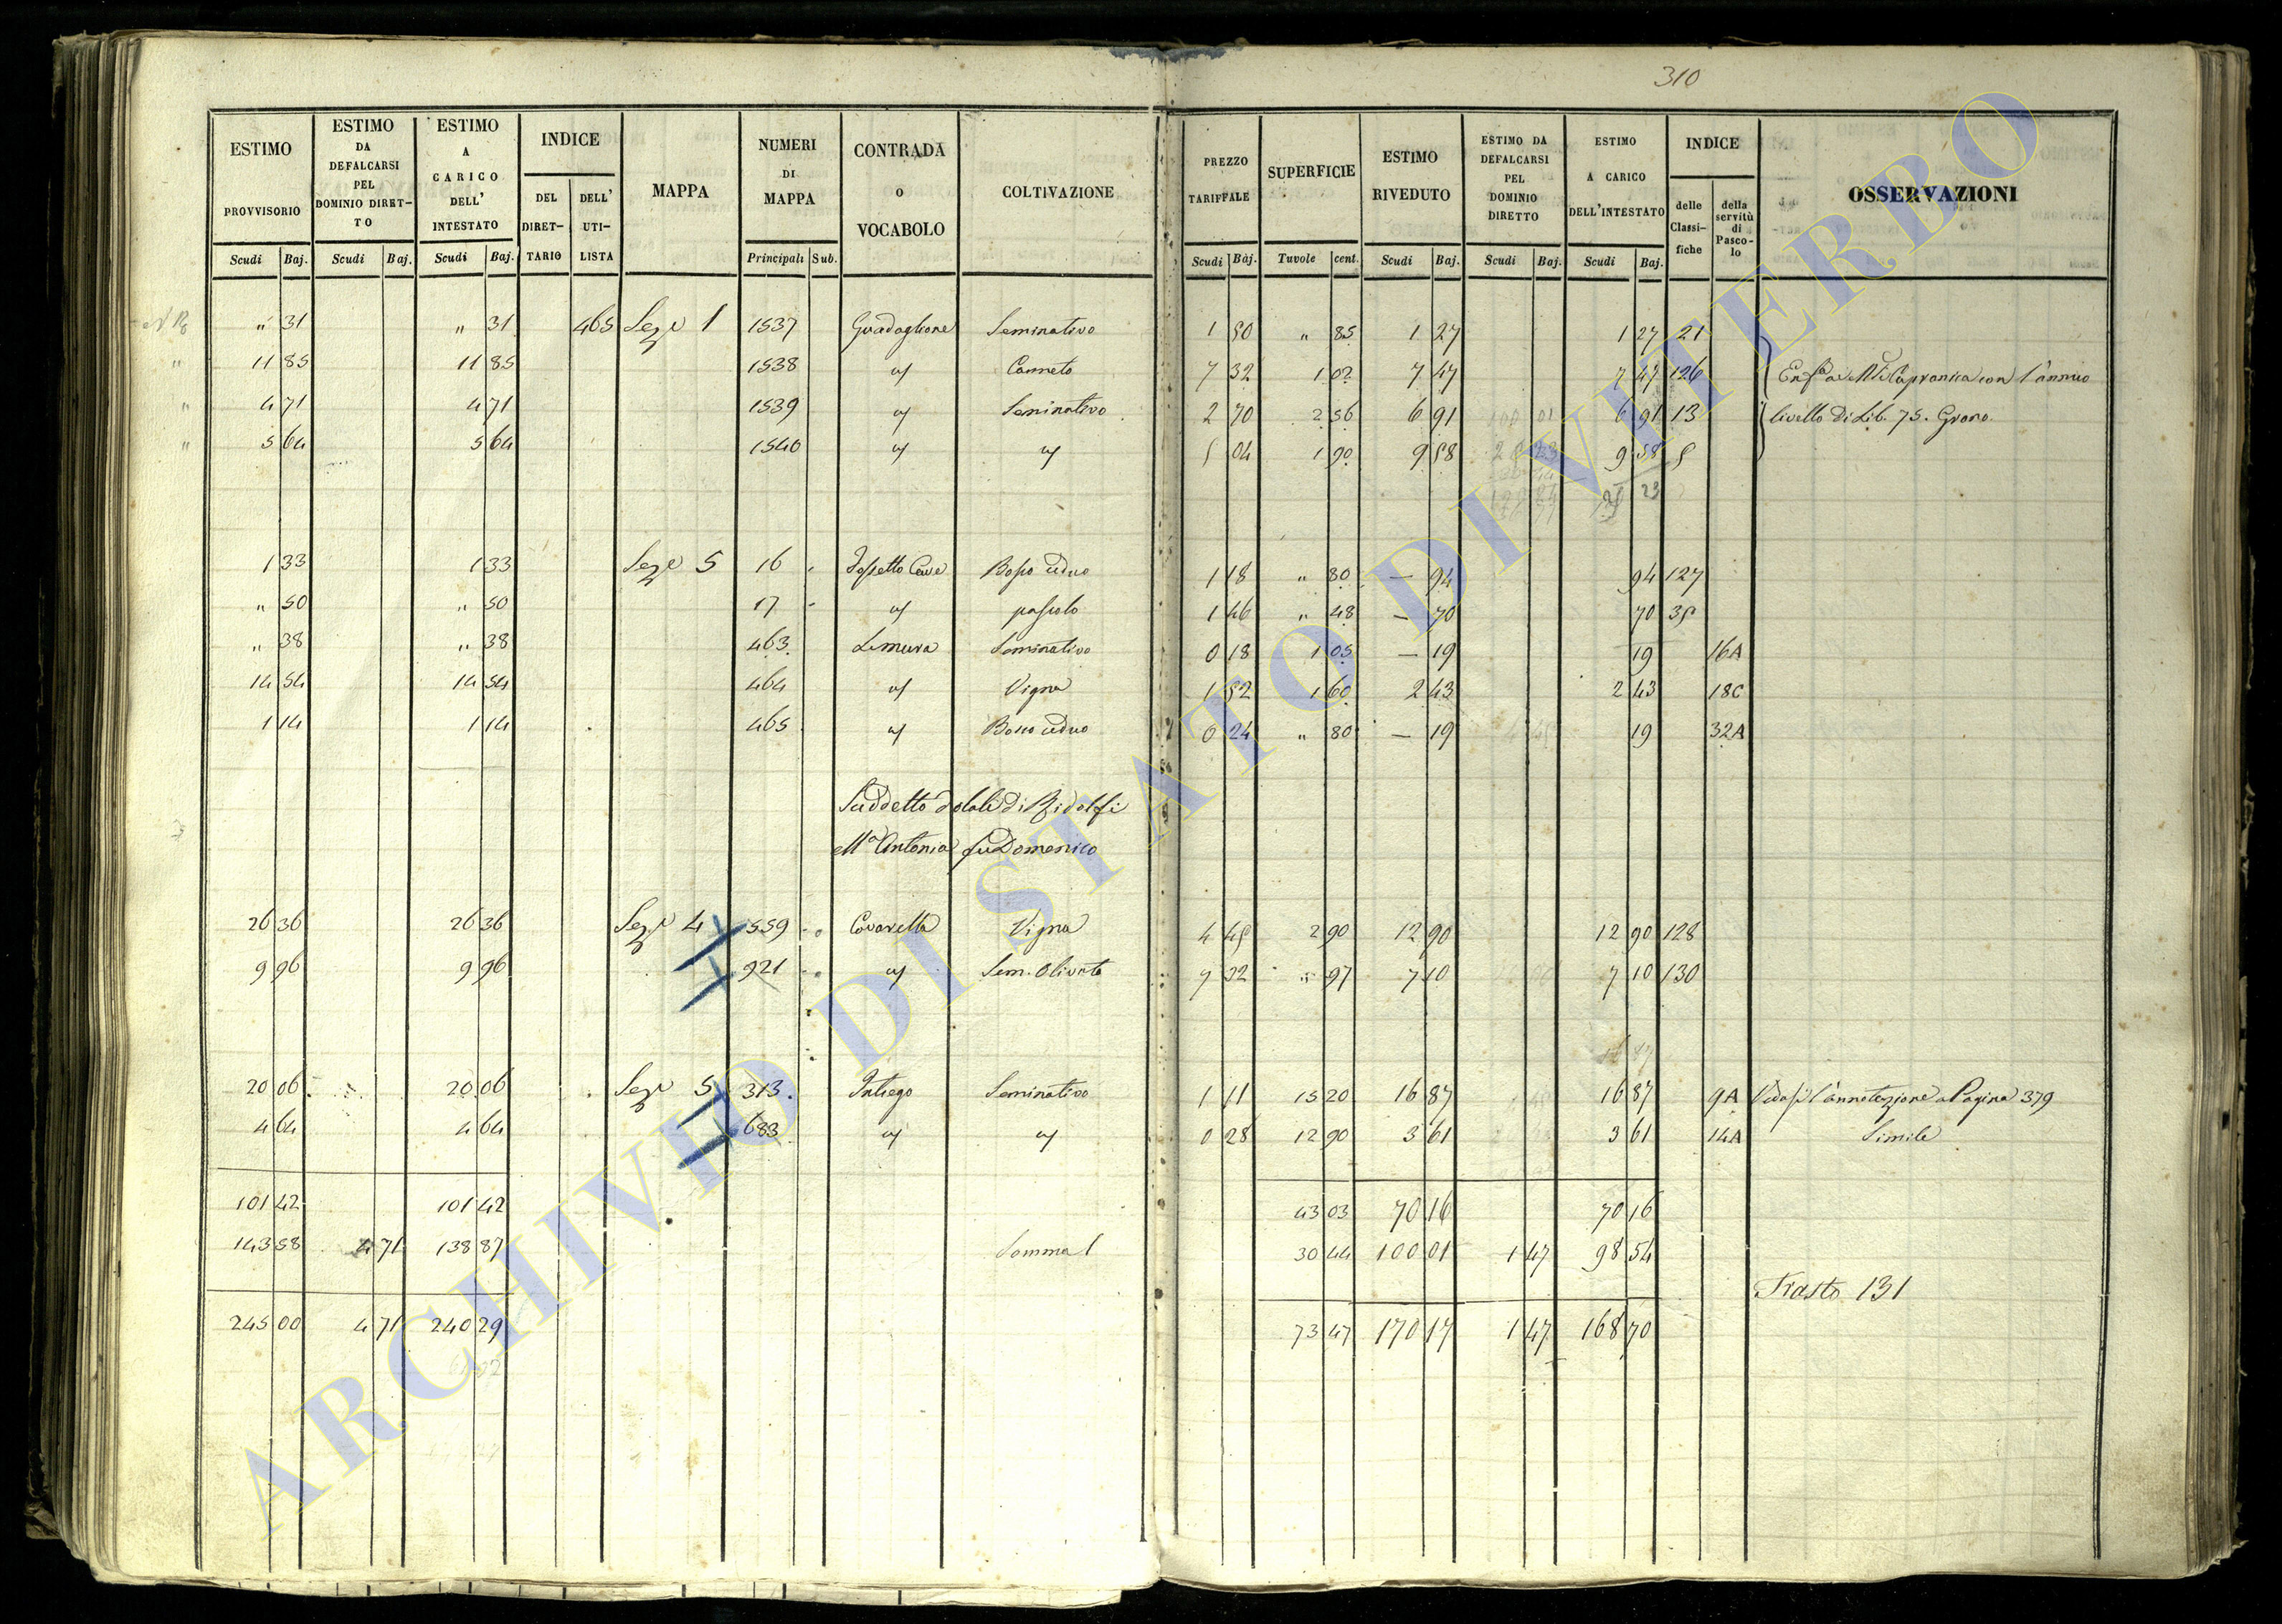 310
ESTIMO PROVVISORIO | ESTIMO DA DEFALCARSI PEL DOMINIO DIRETTO | ESTIMO A CARICO DELL' INTESTATO | INDICE DEL DIRETTARIO | DELL' UTILISTA | MAPPA | NUMERI DI MAPPA | CONTRADA o VOCABOLO | COLTIVAZIONE | PREZZO TARIFFALE | SUPERFICIE | ESTIMO RIVEDUTO | ESTIMO DA DEFALCARSI PEL DOMINIO DIRETTO | ESTIMO A CARICO DELL'INTESTATO | INDICE delle Classifiche | della servitù di Pascolo | OSSERVAZIONI
Scudi | Baj. | Scudi | Baj. | Scudi | Baj. | Principali | Sub. | Scudi | Baj. | Tavole | cent. | Scudi | Baj. | Scudi | Baj. | Scudi | Baj.
" 31 | " 31 | 465 | Sez.e 1 | 1537 | Guadaglione | Seminativo | 1 50 | " 85 | 1 27 | 1 27 | 21
11 85 | 11 85 | 1538 | " | Canneto | 7 32 | 1 02 | 7 47 | 7 47 | 126 | Capranica con l'annuo
4 71 | 4 71 | 1539 | " | Seminativo | 2 70 | 2 56 | 6 91 | 6 91 | 13 | livello di Lib. 75. Grano.
5 64 | 5 64 | 1540 | " | " | 5 04 | 1 90 | 9 58 | 9 58 | 5
25 23
1 33 | 1 33 | Sez.e 5 | 16 | Fossetto Cave | Bosco ceduo | 1 18 | " 80 | — 94 | 94 | 127
" 50 | " 50 | 17 | " | pascolo | 1 46 | " 48 | — 70 | 70 | 35
" 38 | " 38 | 463 | Lemura | Seminativo | 0 18 | 1 05 | — 19 | 19 | 16A
14 54 | 14 54 | 464 | " | Vigna | 1 52 | 1 60 | 2 43 | 2 43 | 18C
1 14 | 1 14 | 465 | " | Bosco ceduo | 0 24 | " 80 | — 19 | 19 | 32A
Suddetto dotali di Ridolfi
Mª Antonia fu Domenico
26 36 | 26 36 | Sez.e 4 | 559 | Covarella | Vigna | 4 45 | 2 90 | 12 90 | 12 90 | 128
9 96 | 9 96 | 921 | " | Sem. Olivato | 7 32 | " 97 | 7 10 | 7 10 | 130
20 06 | 20 06 | Sez.e 5 | 313 | Intiego | Seminativo | 1 11 | 15 20 | 16 87 | 16 87 | 9A | Vedasi l'annotazione a Pagina 379
4 64 | 4 64 | 683 | " | " | 0 28 | 12 90 | 3 61 | 3 61 | 14A | Simile
101 42 | 101 42 | 43 03 | 70 16 | 70 16
143 58 | 4 71 | 138 87 | Somma 1 | 30 44 | 100 01 | 1 47 | 98 54
Trasto 131
245 00 | 4 71 | 240 29 | 73 47 | 170 17 | 1 47 | 168 70
ARCHIVIO DI STATO DI VITERBO